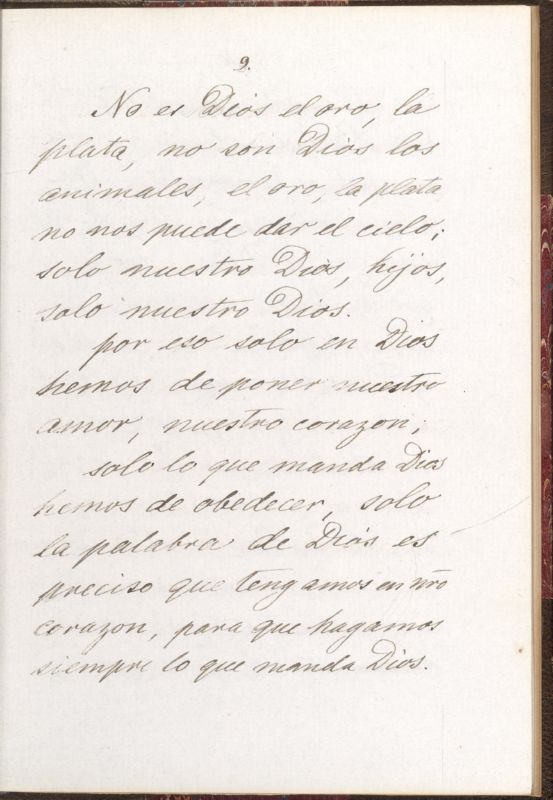 9.
No es Dios el oro, la
plata, no son Dios los
animales, el oro, la plata
no nos puede dar el cielo;
solo nuestro Dios, hijos,
solo nuestro Dios.
por eso solo en Dios
hemos de poner nuestro
amor, nuestro corazon;
solo lo que manda Dios
hemos de obedecer, solo
la palabra de Dios es
preciso que tengamos en nro
corazon, para que hagamos
siempre lo que manda Dios.